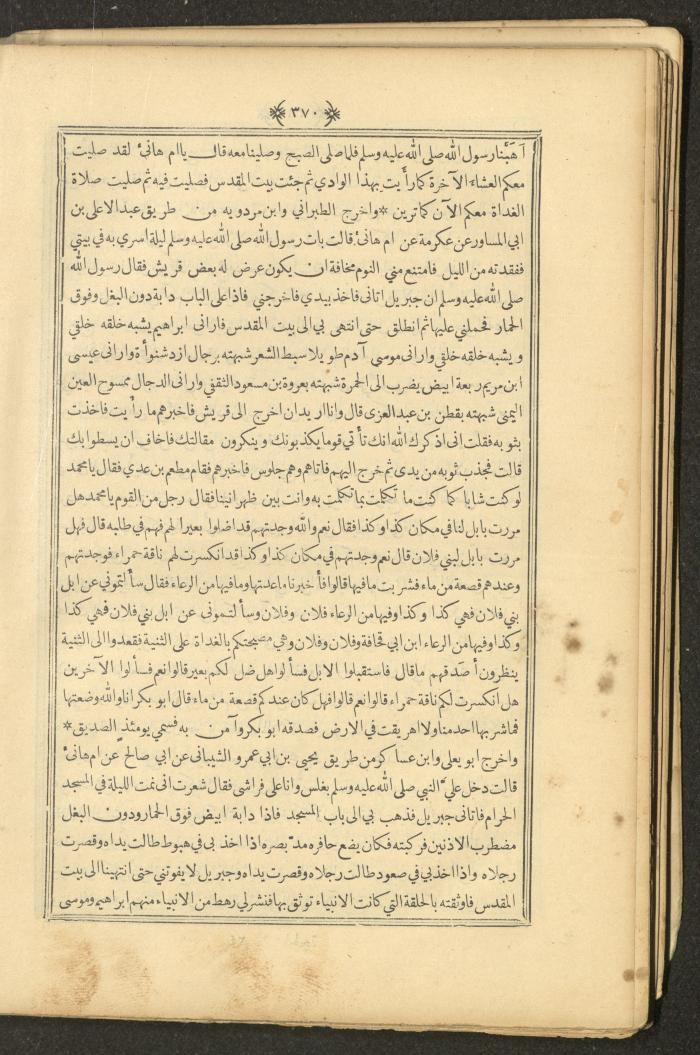 ٣٧٠
اَهَبَّنا رسول الله صلى الله عليه وسلم فلما صلى الصبح وصلينا معه قال يا ام هانئ لقد صليت
معكم العشاء الآخرة كما رأيت بهذا الوادي ثم جئت بيت المقدس فصليت فيه ثم صليت صلاة
الغداة معكم الآن كما ترين * واخرج الطبراني وابن مردويه من طريق عبد الاعلى بن
ابي المساور عن عكرمة عن ام هانئ قالت بات رسول الله صلى الله عليه وسلم ليلة اسري به في بيتي
ففقدته من الليل فامتنع مني النوم مخافة ان يكون عرض له بعض قريش فقال رسول الله
صلى الله عليه وسلم ان جبريل اتاني فاخذ بيدي فاخرجني فاذا على الباب دابة دون البغل وفوق
الحمار فحملني عليها ثم انطلق حتى انتهى بي الى بيت المقدس فاراني ابراهيم يشبه خلقه خلقي
ويشبه خلقه خلقي واراني موسى آدم طويلا سبط الشعر شبهته برجال ازد شنوأة واراني عيسى
ابن مريم ربعة ابيض يضرب الى الحمرة شبهته بعروة بن مسعود الثقفي واراني الدجال ممسوح العين
اليمنى شبهته بقطن بن عبد العزى قال وانا اريد ان اخرج الى قريش فاخبرهم ما رأيت فاخذت
بثوبه فقلت اني اذكرك الله انك تأتي قوما يكذبونك وينكرون مقالتك فاخاف ان يسطوا بك
قالت فجذب ثوبه من يدي ثم خرج اليهم فاتاهم وهم جلوس فاخبرهم فقام مطعم بن عدي فقال يا محمد
لو كنت شابا كما كنت ما تكلمت بما تكلمت به وانت بين ظهرانينا فقال رجل من القوم يا محمد هل
مررت بابل لنا في مكان كذا وكذا فقال نعم والله وجدتهم قد اضلوا بعيرا لهم فهم في طلبه قال فهل
مررت بابل لبني فلان قال نعم وجدتهم في مكان كذا وكذا قد انكسرت لهم ناقة حمراء فوجدتهم
وعندهم قصعة من ماء فشربت ما فيها قالوا فأخبرنا ما عدتها وما فيها من الرعاء فقال سألتموني عن ابل
بني فلان فهي كذا وكذا وفيها من الرعاء فلان وفلان وسألتموني عن ابل بني فلان فهي كذا
وكذا وفيها من الرعاء ابن ابي قحافة وفلان وفلان وهي مصبحتكم بالغداة على الثنية فقعدوا الى الثنية
ينظرون أصدقهم ما قال فاستقبلوا الابل فسألوا هل ضل لكم بعير قالوا نعم فسألوا الآخرين
هل انكسرت لكم ناقة حمراء قالوا نعم قالوا فهل كان عندكم قصعة من ماء قال ابو بكر انا والله وضعتها
فما شربها احد منا ولا اهريقت في الارض فصدقه ابو بكر وآمن به فسمي يومئذ الصديق *
واخرج ابو يعلى وابن عساكر من طريق يحيى بن ابي عمرو الشيباني عن ابي صالح عن ام هانئ
قالت دخل علي النبي صلى الله عليه وسلم بغلس وانا على فراشي فقال شعرت اني نمت الليلة في المسجد
الحرام فاتاني جبريل فذهب بي الى باب المسجد فاذا دابة ابيض فوق الحمار ودون البغل
مضطرب الاذنين فركبته فكان يضع حافره مدّ بصره اذا اخذ بي في هبوط طالت يداه وقصرت
رجلاه واذا اخذ بي في صعود طالت رجلاه وقصرت يداه وجبريل لا يفوتني حتى انتهينا الى بيت
المقدس فاوثقته بالحلقة التي كانت الانبياء توثق بها فنشر لي رهط من الانبياء منهم ابراهيم وموسى